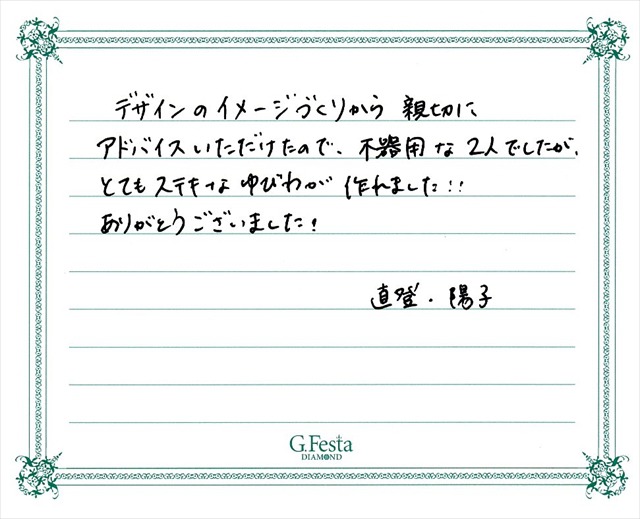 デザインのイメージづくりから 親切に
アドバイスいただけたので、不器用な2人でしたが、
とてもステキなゆびわが 作れました!!
ありがとうございました!
直登・陽子
G.Festa
DIAMOND